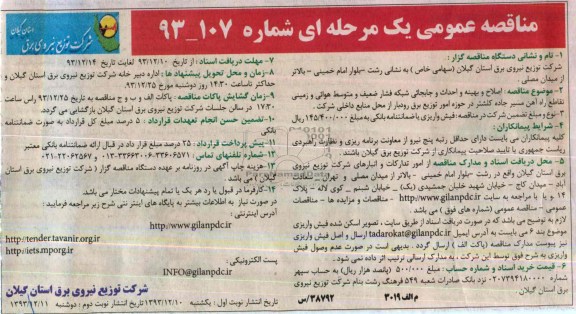 مناقصه عمومی یک مرحله ای شماره ۱۰۷_۹۳
شرکت توزیع نیروی برق
استان گیلان
۱- نام و نشانی دستگاه مناقصه گزار:
شرکت توزیع نیروی برق استان گیلان (سهامی خاص) به نشانی رشت –بلوار امام خمینی – بالاتر
از میدان مصلی .
۲-موضوع مناقصه: اصلاح و بهینه و احداث و جابجائی شبکه فشار ضعیف و متوسط هوائی و زمینی
تقاطع راه آهن مسیر جاده کلشتر در حوزه امور توزیع برق رودبار از محل منابع داخلی شرکت .
۳-نوع و مبلغ تضمین شرکت در مناقصه: فیش واریزی یا ضمانتنامه بانکی به مبلغ ۱۴۵/۴۰۰/۰۰۰ ریال
۴- شرایط پیمانکاران:
کلیه پیمانکاران می بایست دارای حداقل رتبه پنج نیرو از معاونت برنامه ریزی و نظارت راهبردی
ریاست جمهوری با تایید صلاحیت پیمانکاری از شرکت توزیع برق گیلان باشند.
۵- محل دریافت اسناد و مدارک مناقصه از امور تدارکات و انبارهای شرکت توزیع نیروی
برق استان گیلان واقع در رشت –بلوار امام خمینی – بالاتر از میدان مصلی و تهران _ سعادت
آباد – میدان کاج – خیابان شهید خلیل جمشیدی (یک) _ خیابان شبنم _ کوی لاله – پلاک
۱۴ و یا با مراجعه به سایت http://www.gilanpdc.ir - مناقصات و مزایده ها – مناقصات
عمومی – مناقصه عمومی (شماره های فوق) می باشد.
لازم به توضیح می باشد که در صورت دریافت اسناد از طریق سایت ، تصویر اسکن شده فیش واریزی
موضوع بند ۶ می بایست به آدرس ایمیل tadarokat@gilanpdc.ir ارسال و اصل فیش واریزی
نیز پیوست مدارک مناقصه (پاکت الف ) ارسال گردد . بدیهی است در صورت عدم وصول فیش
واریزی به شرح فوق توسط این شرکت ، به مدارک ارسالی ترتیب اثر داده نمی شود.
۶- قیمت خرید اسناد و شماره حساب : مبلغ ۵۰۰/۰۰۰ (پانصد هزار ریال) به حساب سپهر
شماره ۰۲۰۷۳۹۴۱۸۰۰۰ نزد بانک صادرات شعبه ۵۴۹ فرهنگ رشت بنام شرکت توزیع نیروی
م الف ۳۰۱۹
۷- مهلت دریافت اسناد : از تاریخ ۹۳/۱۲/۱۰ لغایت تاریخ ۹۳/۱۲/۱۴
۸-زمان و محل تحویل پیشنهاد ها : اداره دبیر خانه شرکت توزیع نیروی برق استان گیلان و
حداکثر تاساعت ۱۴:۳۰ روز دوشنبه مورخ ۹۳/۱۲/۲۵
۹- زمان گشایش پاکات مناقصه : پاکات الف و ب و ج مناقصه به تاریخ ۹۳/۱۲/۲۵ راس ساعت
۱۷:۳۰ در سالن جلسات شرکت توزیع نیروی برق استان گیلان بازگشایی می گردد.
۱۰-تضمین حسن انجام تعهدات قرارداد : ۵ درصد مبلغ کل قرارداد به صورت ضمانتنامه
بانکی
۱۱- پیش پرداخت قرارداد: ۲۵ درصد مبلغ قرار داد در قبال ارائه ضمانتنامه بانکی معتبر
۱۲-شماره تلفنهای تماس :
۱۳- هزینه چاپ آگهی در روزنامه بر عهده دستگاه مناقصه گزار ( شرکت توزیع برق استان
گیلان ) می باشد.
۱۴-کارفرما در قبول یا رد هر یک یا تمام پیشنهادات مختار می باشد.
در صورت نیاز به اطلاعات بیشتر به پایگاه های اینتر نتی شرح زیر مراجعه فرمایید:
آدرس اینترنتی :
http:/www.gilanpdc.ir
http://tender.tavanir.org.ir
http://iets.mporg.ir
پست الکترونیکی:
INFO@gilanpdc.ir
شرکت توزیع نیروی برق استان گیلان
۳۸۷۹۲/س
تاریخ انتشار نوبت اول : یکشنبه ۱۳۹۳/۱۲/۱۰ تاریخ انتشار نوبت دوم : دوشنبه ۱۳۹۳/۱۲/۱۱